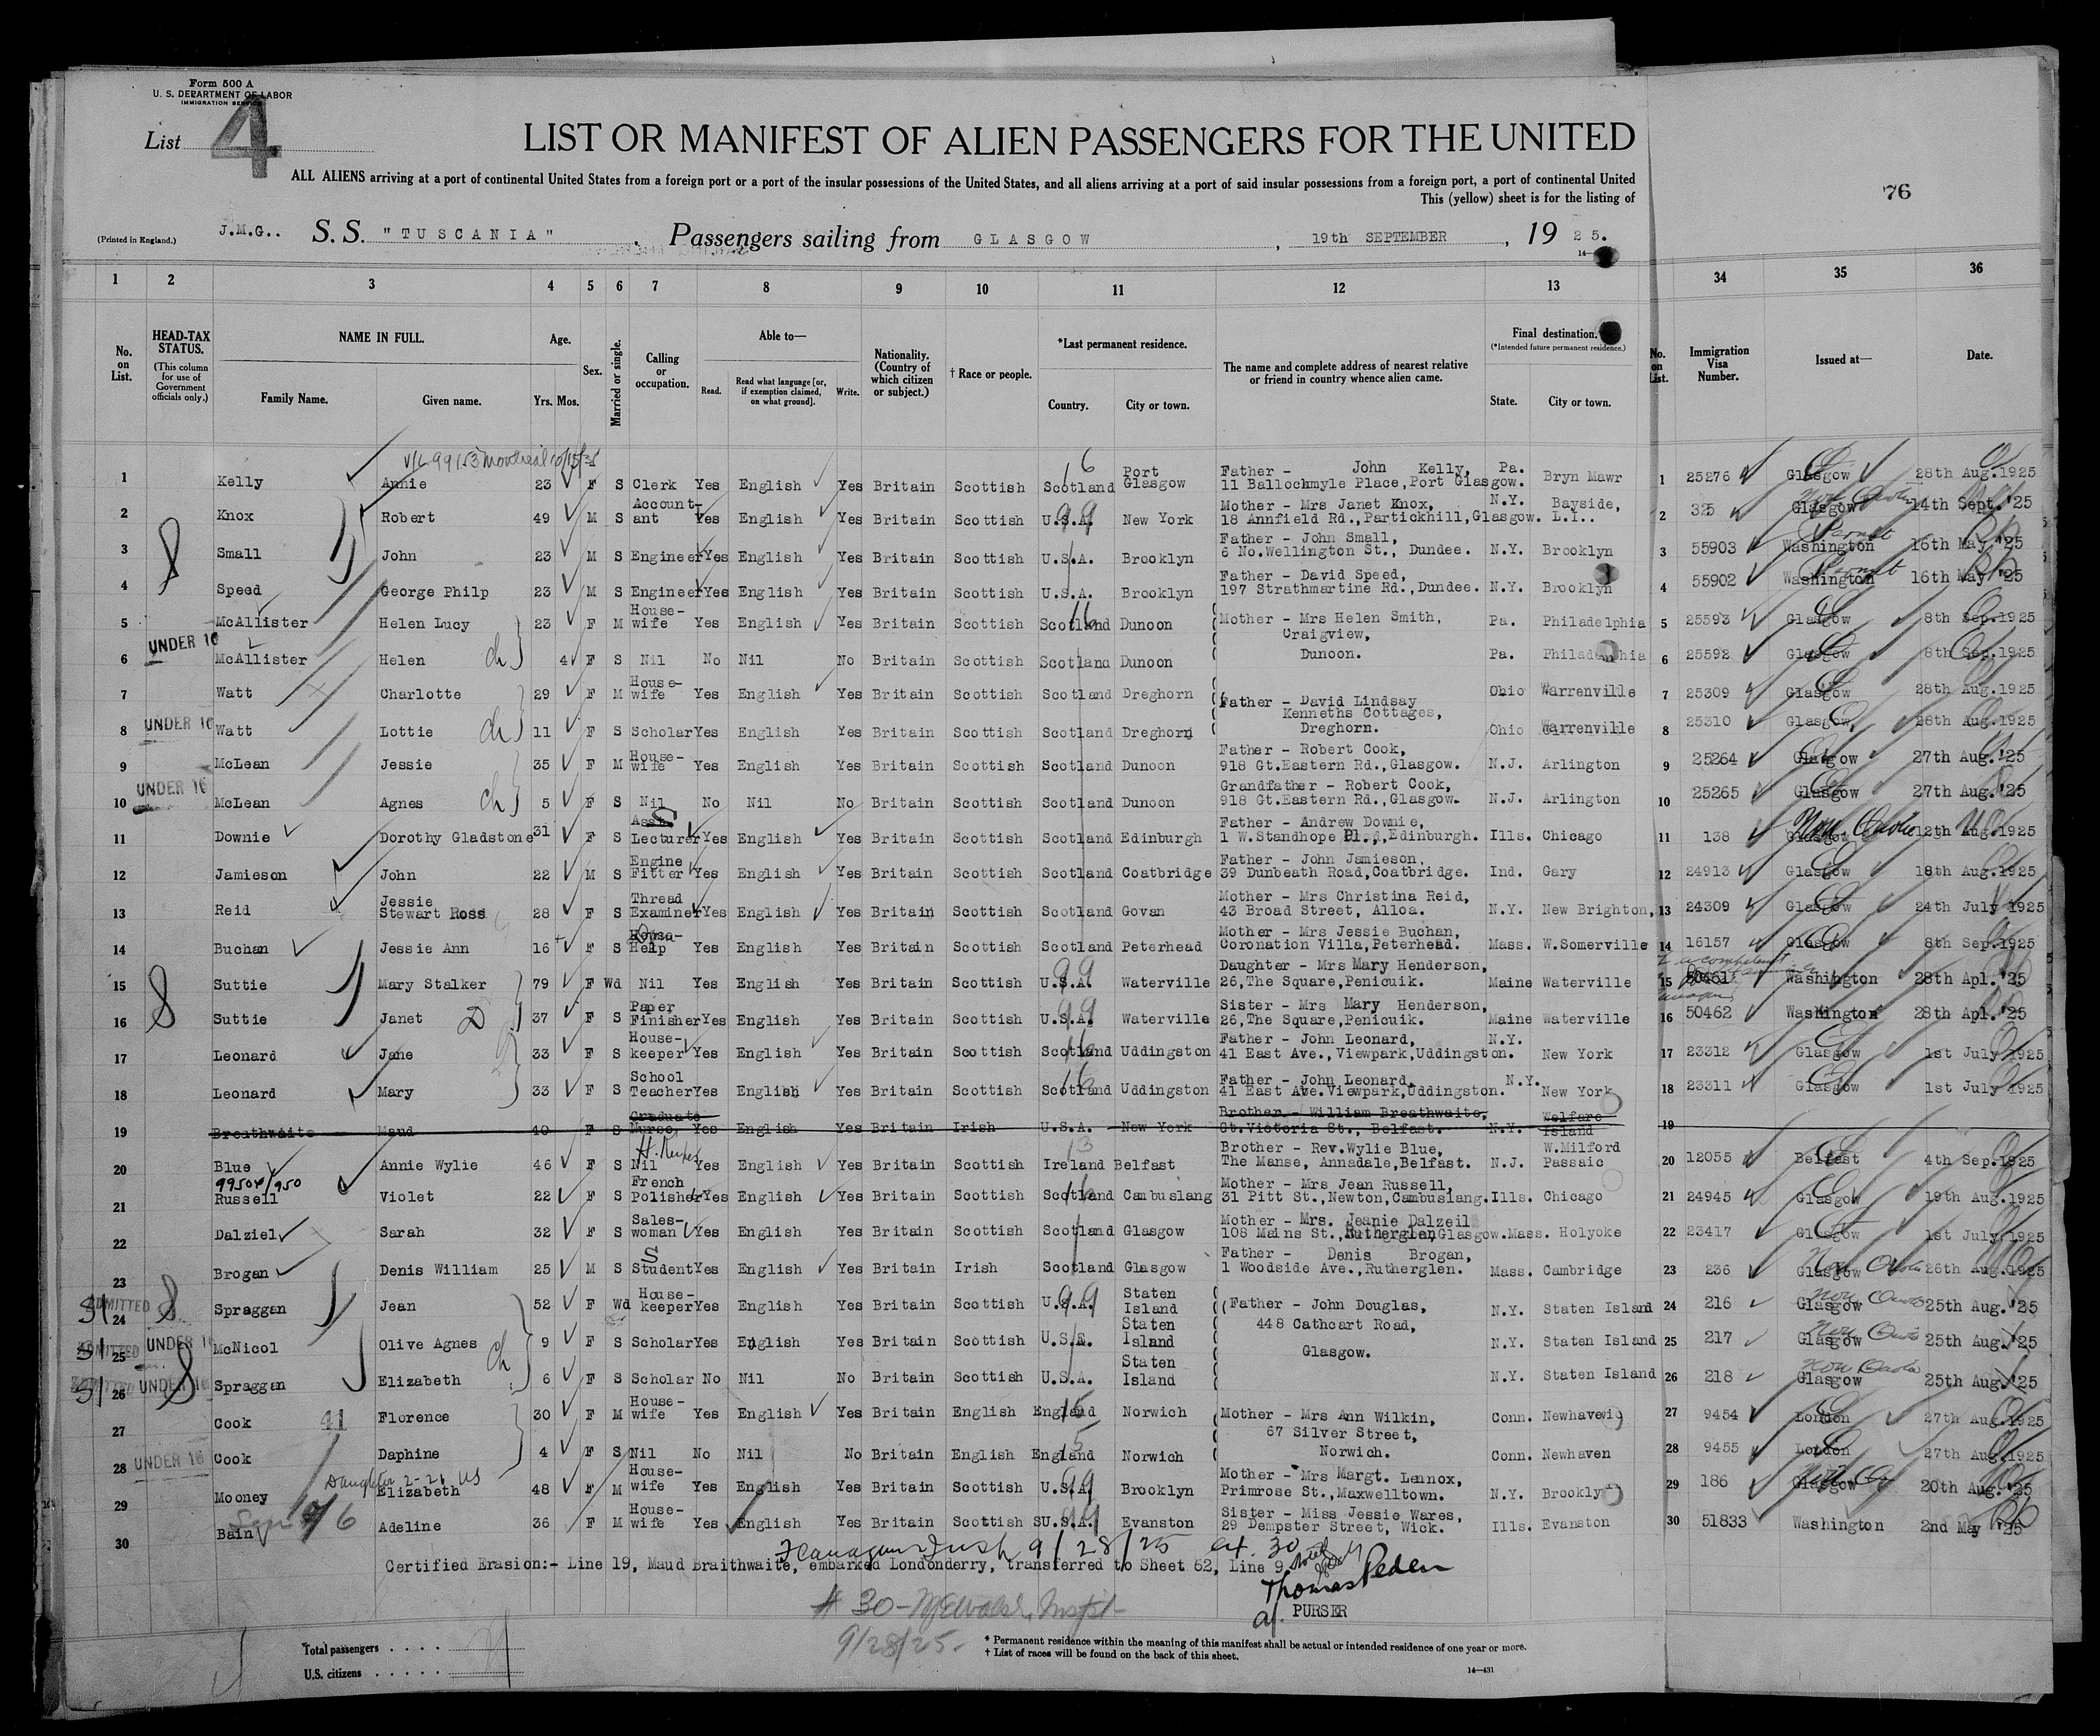 Form 500 A
U. S. DEPARTMENT OF LABOR
IMMIGRATION SERVICE
List 4
LIST OR MANIFEST OF ALIEN PASSENGERS FOR THE UNITED
ALL ALIENS arriving at a port of continental United States from a foreign port or a port of the insular possessions of the United States, and all aliens arriving at a port of said insular possessions from a foreign port, a port of continental United
This (yellow) sheet is for the listing of
76
(Printed in England.) J.M.G.. S. S. "TUSCANIA", Passengers sailing from GLASGOW, 19th SEPTEMBER, 19 25.
1 2 3 4 5 6 7 8 9 10 11 12 13 34 35 36
No. on List. HEAD-TAX STATUS. (This column for use of Government officials only.) NAME IN FULL. Family Name. Given name. Age. Yrs. Mos. Sex. Married or single. Calling or occupation. Able to— Read. Read what language [or, if exemption claimed, on what ground]. Write. Nationality. (Country of which citizen or subject.) † Race or people. *Last permanent residence. Country. City or town. The name and complete address of nearest relative or friend in country whence alien came. Final destination. (*Intended future permanent residence.) State. City or town. No. on List. Immigration Visa Number. Issued at— Date.
1 Kelly Annie 23 F S Clerk Yes English Yes Britain Scottish Scotland Port Glasgow Father - John Kelly, 11 Ballochmyle Place, Port Glasgow. Pa. Bryn Mawr 1 25276 Glasgow 28th Aug. 1925
2 Knox Robert 49 M S Accountant Yes English Yes Britain Scottish U.S.A. New York Mother - Mrs Janet Knox, 18 Annfield Rd., Partickhill, Glasgow. N.Y. Bayside, L.I.. 2 325 Glasgow 14th Sept. '25
3 Small John 23 M S Engineer Yes English Yes Britain Scottish U.S.A. Brooklyn Father - John Small, 6 No. Wellington St., Dundee. N.Y. Brooklyn 3 55903 Washington 16th May '25
4 Speed George Philp 23 M S Engineer Yes English Yes Britain Scottish U.S.A. Brooklyn Father - David Speed, 197 Strathmartine Rd., Dundee. N.Y. Brooklyn 4 55902 Washington 16th May '25
5 McAllister Helen Lucy 23 F M House-wife Yes English Yes Britain Scottish Scotland Dunoon Mother - Mrs Helen Smith, Craigview, Dunoon. Pa. Philadelphia 5 25593 Glasgow 8th Sep. 1925
6 UNDER 16 McAllister Helen ch 4 F S Nil No Nil No Britain Scottish Scotland Dunoon Pa. Philadelphia 6 25592 Glasgow 8th Sep. 1925
7 Watt Charlotte 29 F M House-wife Yes English Yes Britain Scottish Scotland Dreghorn Father - David Lindsay Kenneths Cottages, Dreghorn. Ohio Warrenville 7 25309 Glasgow 28th Aug. 1925
8 UNDER 16 Watt Lottie ch 11 F S Scholar Yes English Yes Britain Scottish Scotland Dreghorn Ohio Warrenville 8 25310 Glasgow 28th Aug. 1925
9 McLean Jessie 35 F M House-wife Yes English Yes Britain Scottish Scotland Dunoon Father - Robert Cook, 918 Gt. Eastern Rd., Glasgow. N.J. Arlington 9 25264 Glasgow 27th Aug. '25
10 UNDER 16 McLean Agnes ch 5 F S Nil No Nil No Britain Scottish Scotland Dunoon Grandfather - Robert Cook, 918 Gt. Eastern Rd., Glasgow. N.J. Arlington 10 25265 Glasgow 27th Aug. '25
11 Downie Dorothy Gladstone 31 F S Asst Lecturer Yes English Yes Britain Scottish Scotland Edinburgh Father - Andrew Downie, 1 W. Standhope Pl., Edinburgh. Ills. Chicago 11 138 Glasgow 12th Aug. 1925
12 Jamieson John 22 M S Engine Fitter Yes English Yes Britain Scottish Scotland Coatbridge Father - John Jamieson, 39 Dunbeath Road, Coatbridge. Ind. Gary 12 24913 Glasgow 18th Aug. 1925
13 Reid Jessie Stewart Ross 28 F S Thread Examiner Yes English Yes Britain Scottish Scotland Govan Mother - Mrs Christina Reid, 43 Broad Street, Alloa. N.Y. New Brighton, 13 24309 Glasgow 24th July 1925
14 Buchan Jessie Ann 16 F S Help Yes English Yes Britain Scottish Scotland Peterhead Mother - Mrs Jessie Buchan, Coronation Villa, Peterhead. Mass. W. Somerville 14 16157 Glasgow 8th Sep. 1925
15 Suttie Mary Stalker 79 F Wd Nil Yes English Yes Britain Scottish U.S.A. Waterville Daughter - Mrs Mary Henderson, 26, The Square, Penicuik. Maine Waterville 15 50461 Washington 28th Apl. '25
16 Suttie Janet 37 F S Paper Finisher Yes English Yes Britain Scottish U.S.A. Waterville Sister - Mrs Mary Henderson, 26, The Square, Penicuik. Maine Waterville 16 50462 Washington 28th Apl. '25
17 Leonard Jane 33 F S House-keeper Yes English Yes Britain Scottish Scotland Uddingston Father - John Leonard, 41 East Ave., Viewpark, Uddingston. N.Y. New York 17 23312 Glasgow 1st July 1925
18 Leonard Mary 33 F S School Teacher Yes English Yes Britain Scottish Scotland Uddingston Father - John Leonard, 41 East Ave. Viewpark, Uddingston. N.Y. New York 18 23311 Glasgow 1st July 1925
19 Breathwaite Maud 40 F S Graduate Nurse Yes English Yes Britain Irish U.S.A. New York Brother - William Breathwaite, Gt. Victoria St., Belfast. N.Y. Welfare Island 19
20 Blue Annie Wylie 46 F S Nil Yes English Yes Britain Scottish Ireland Belfast Brother - Rev. Wylie Blue, The Manse, Annadale, Belfast. N.J. W. Milford Passaic 20 12055 Belfast 4th Sep. 1925
21 Russell Violet 22 F S French Polisher Yes English Yes Britain Scottish Scotland Cambuslang Mother - Mrs Jean Russell, 31 Pitt St., Newton, Cambuslang. Ills. Chicago 21 24945 Glasgow 19th Aug. 1925
22 Dalziel Sarah 32 F S Sales-woman Yes English Yes Britain Scottish Scotland Glasgow Mother - Mrs. Jeanie Dalzeil 108 Mains St., Rutherglen, Glasgow. Mass. Holyoke 22 23417 Glasgow 1st July 1925
23 Brogan Denis William 25 M S Student Yes English Yes Britain Irish Scotland Glasgow Father - Denis Brogan, 1 Woodside Ave., Rutherglen. Mass. Cambridge 23 236 Glasgow 26th Aug. 1925
24 ADMITTED Spraggan Jean 52 F Wd House-keeper Yes English Yes Britain Scottish U.S.A. Staten Island Father - John Douglas, 448 Cathcart Road, Glasgow. N.Y. Staten Island 24 216 Glasgow 25th Aug. '25
25 ADMITTED UNDER 16 McNicol Olive Agnes ch 9 F S Scholar Yes English Yes Britain Scottish U.S.A. Staten Island N.Y. Staten Island 25 217 Glasgow 25th Aug. '25
26 ADMITTED UNDER 16 Spraggan Elizabeth 6 F S Scholar No Nil No Britain Scottish U.S.A. Staten Island N.Y. Staten Island 26 218 Glasgow 25th Aug. '25
27 Cook Florence 30 F M House-wife Yes English Yes Britain English England Norwich Mother - Mrs Ann Wilkin, 67 Silver Street, Norwich. Conn. Newhaven 27 9454 London 27th Aug. 1925
28 UNDER 16 Cook Daphine 4 F S Nil No Nil No Britain English England Norwich Conn. Newhaven 28 9455 London 27th Aug. 1925
29 Mooney Elizabeth 48 F M House-wife Yes English Yes Britain Scottish U.S.A. Brooklyn Mother - Mrs Margt. Lennox, Primrose St., Maxwelltown. N.Y. Brooklyn 29 186 Glasgow 20th Aug. '25
30 Bain Adeline 36 F M House-wife Yes English Yes Britain Scottish U.S.A. Evanston Sister - Miss Jessie Wares, 29 Dempster Street, Wick. Ills. Evanston 30 51833 Washington 2nd May '25
9/28/25
Certified Erasion:- Line 19, Maud Braithwaite, embarked Londonderry, transferred to Sheet 62, Line 9
Thomas Peden
PURSER
# 30
9/28/25
Total passengers . . . .
U.S. citizens . . . . .
* Permanent residence within the meaning of this manifest shall be actual or intended residence of one year or more.
† List of races will be found on the back of this sheet.
14—431